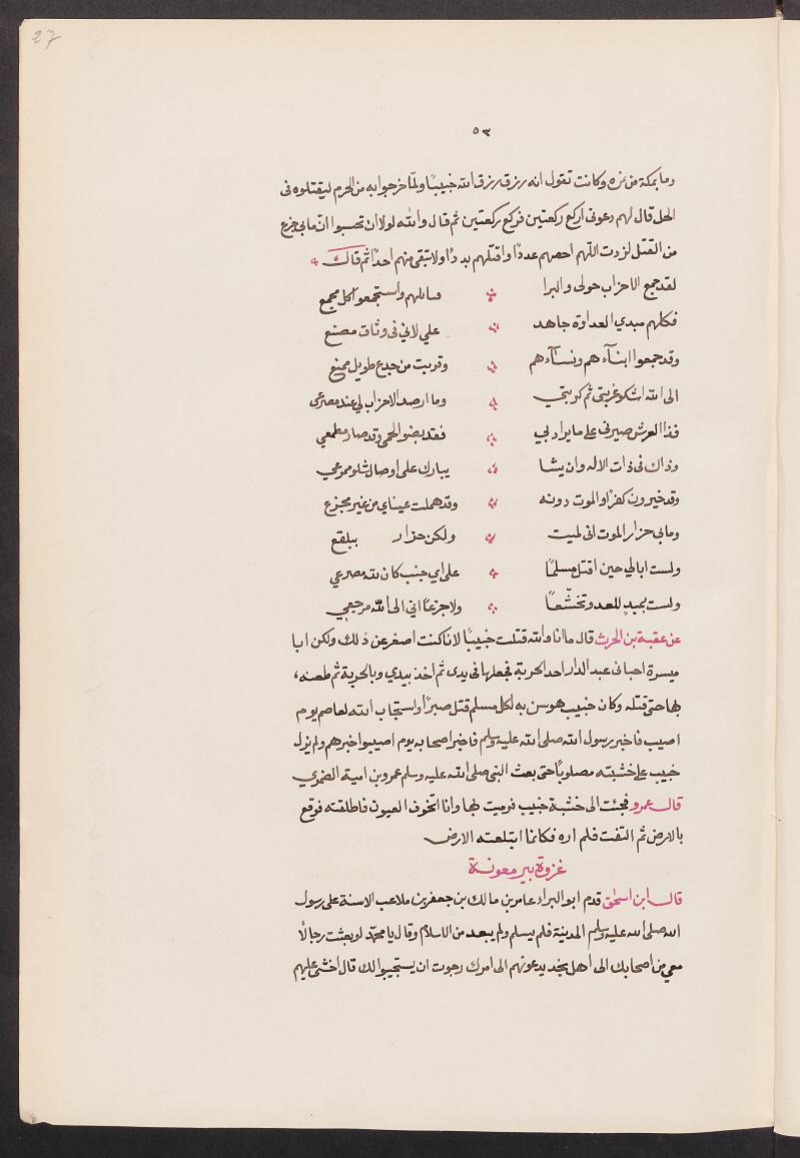 27
٥٣
وما بمكة من ثمره وكانت تقول انه رزق رزق الله خبيبًا ولمّا خرجوا به من الحرم ليقتلوه فى
الحل قال لهم دعونى اركع ركعتين فركع ركعتين ثم قال والله لولا ان تحسبوا انّ مابى جزع
من القتل لزدت اللهم احصهم عددًا واقتلهم بددًا ولا تبقى منهم احدًا ثم قال
لقد جمع الاحزاب حولى والبوا قبائلهم واستجمعوا كل مجمع
فكلهم مبدي العداوة جاهد علي لاني فى وثاق مصنع
وقد جمعوا ابنآءهم ونسآءهم وقربت من جدع طويل ممنع
الى الله اشكو غربتي ثم كربتي وما ارصد الاحزاب لي عند مصرعى
فذا العرش صبرنى على ما يراد بي فقد بضعوا لحمى وقد صار مطمعي
وذاك فى ذات الاله وان يشا يبارك على اوصال شلو ممزعي
وقد خيرون كفرًا والموت دونه وقد هملت عيناي من غير مجزع
ومابى حزار الموت انى لميت ولكن حزار بلقع
ولست ابالي حين اقتل مسلمًا على اي جنب كان لله مصرعي
ولست بمبدٍ للعدو تخشّعًا ولا جزعًا اني الى الله مرجعي
عن عقبة بن الحرث قال ما انا والله قتلت خبيبًا لانا كنت اصغر عن ذلك ولكن ابا
ميسرة احبانى عبد الدار احد الحربة فجعلها فى يدى ثم اخذ بيدي وبالحربة ثم طعنه،
بها حتى قتله وكان خبيب هو سن به لكل مسلم قتل صبرًا واستجاب الله لعاصم يوم
اصيب فاخبر رسول الله صلى الله عليه وسلم فاخبر اصحابه يوم اصيبوا خبرهم ولم يزل
خبيب على خشبته مصلوبًا حتى بعث النبى صلى الله عليه وسلم عمرو بن امية الضمري
قال عمرو فجئت الى خشبة خبيب فرميت لها وانا اتخوف العيون فاطلقته فوقع
بالارض ثم التفت فلم اره فكانما ابتلعته الارض
غزوة بير معونة
قال ابن اسحق قدم ابو البراء عامر بن مالك بن جعفر بن ملاعب الاسنة على رسول
الله صلى الله عليه وسلم المدينة فلم يسلم ولم يبعد من الاسلام وقال يا محمد لو بعثت رجالًا
معي من اصحابك الى اهل نجد يدعونهم الى امرك رجوت ان يستجيبوا لك قال اخشى عليهم